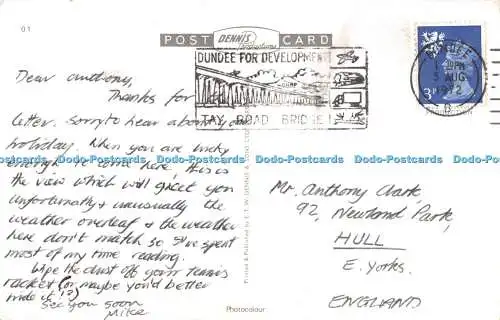 01
POST CARD
DENNIS
Productions
DUNDEE FOR DEVELOPMENT
TAY ROAD BRIDGE
DUNDEE
PM
5 AUG
1972
3P
Dear Anthony,
Thanks for
letter. Sorry to hear about your
holiday. When you are lucky
enough to come here, this is
the view which will greet you
Unfortunately & unusually the
weather overleaf & the weather
here don't match so I've spent
most of my time reading.
Wipe the dust off your tennis
racket (or maybe you'd better
hide it!?)
See you soon
Mike
Mr. Anthony Clark,
92, Newland Park,
HULL
E. Yorks.
ENGLAND
Printed & Published by E.T.W. DENNIS & SONS LTD
Photocolour
Dodo-Postcards Dodo-Postcards Dodo-Postcards Dodo-Postcards Dodo-Postcards